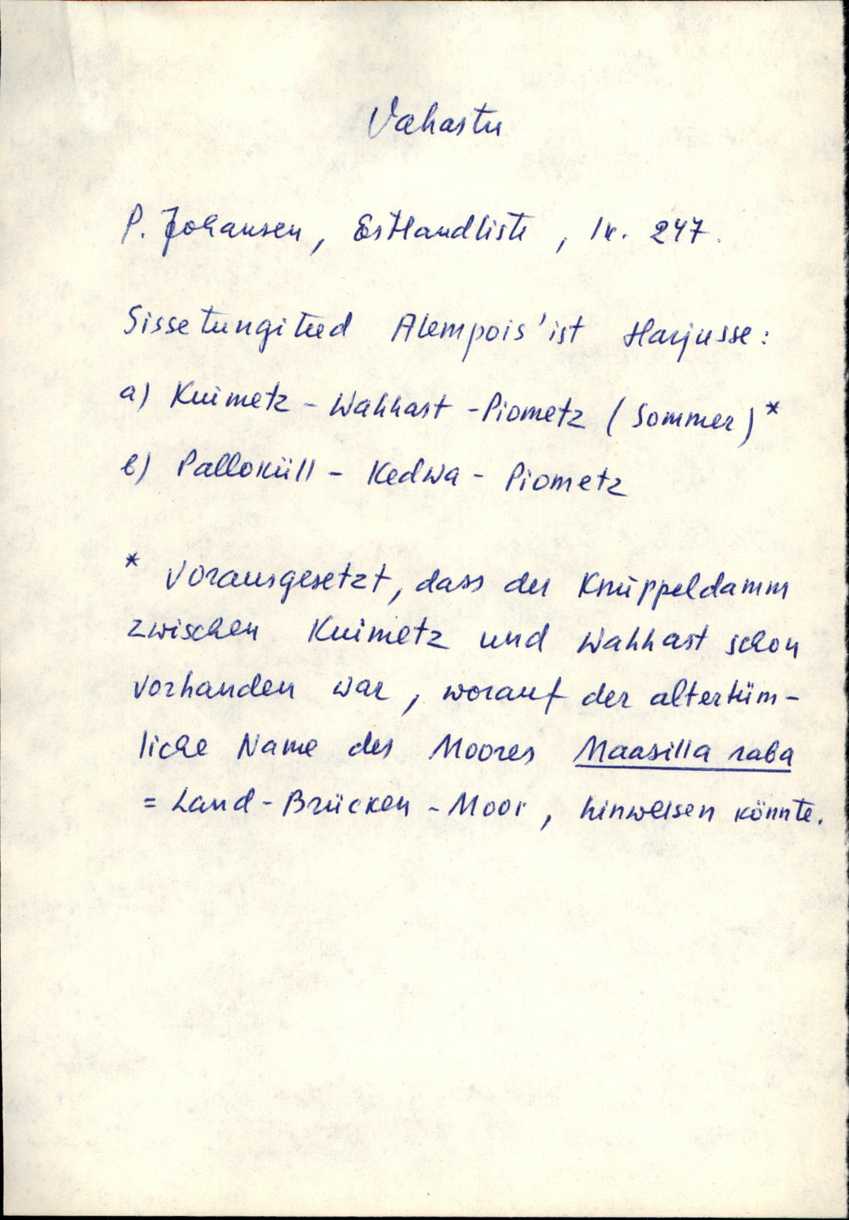 Vahastu
P. Johansen, Estlandliste, lk. 247.
Sissetungiteed Alempois'ist Harjusse:
a) Kuimetz - Wahhast - Piometz (Sommer)*
b) Palloküll - Kedwa - Piometz
* Vorausgesetzt, dass der Knüppeldamm
zwischen Kuimetz und Wahhast schon
vorhanden war, worauf der altertüm-
liche Name des Moores Maasilla raba
= Land-Brücken-Moor, hinweisen könnte.